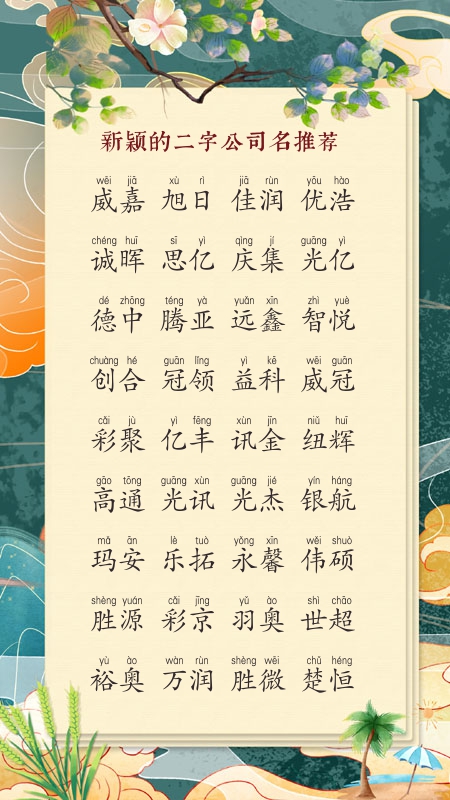 新颖的二字公司名推荐
wēi jiā xù rì jiā rùn yōu hào
威嘉 旭日 佳润 优浩
chéng huī sī yì qìng jí guāng yì
诚晖 思亿 庆集 光亿
dé zhōng téng yà yuǎn xīn zhì yuè
德中 腾亚 远鑫 智悦
chuàng hé guān lǐng yì kē wēi guān
创合 冠领 益科 威冠
cǎi jù yì fēng xùn jīn niǔ huī
彩聚 亿丰 讯金 纽辉
gāo tōng guāng xùn guāng jié yín háng
高通 光讯 光杰 银航
mǎ ān lè tuò yǒng xīn wěi shuò
玛安 乐拓 永馨 伟硕
shèng yuán cǎi jīng yǔ ào shì chāo
胜源 彩京 羽奥 世超
yù ào wàn rùn shèng wēi chǔ héng
裕奥 万润 胜微 楚恒